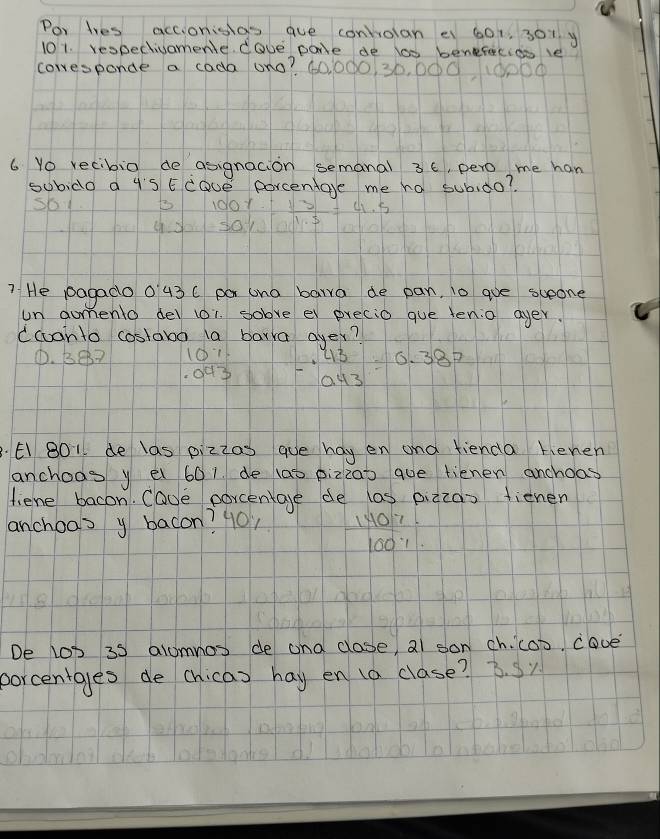 Por tres accionistas que controlan el 60%, 30% y
10% respectivamente. ¿Qué parte de los beneficios le
corresponde a cada uno? 60,000, 30,000, 10,000
6 Yo recibia de asignación semanal 3 €, pero me han
subido a 4'5 € ¿Qué porcentaje me ha subido?
50%. 3 100% 4.5
50% 1.5
7. He pagado 0'43 € por una barra de pan, lo que supone
un aumento del 10%. sobre el precio que tenia ayer.
¿Cuánto costaba la barra ayer?
0.387 10%. .43 = 0.387
.043 - 043
8. El 80% de las pizzas que hay en una tienda tienen
anchoas y el 60% de las pizzas que tienen anchoas
tiene bacon. ¿Qué porcentaje de las pizzas tienen
anchoas y bacon? 40% 140%.
100%.
De los 35 alumnos de una clase, 21 son chicas, ¿Qué
porcentajes de chicas hay en la clase? 3.5%